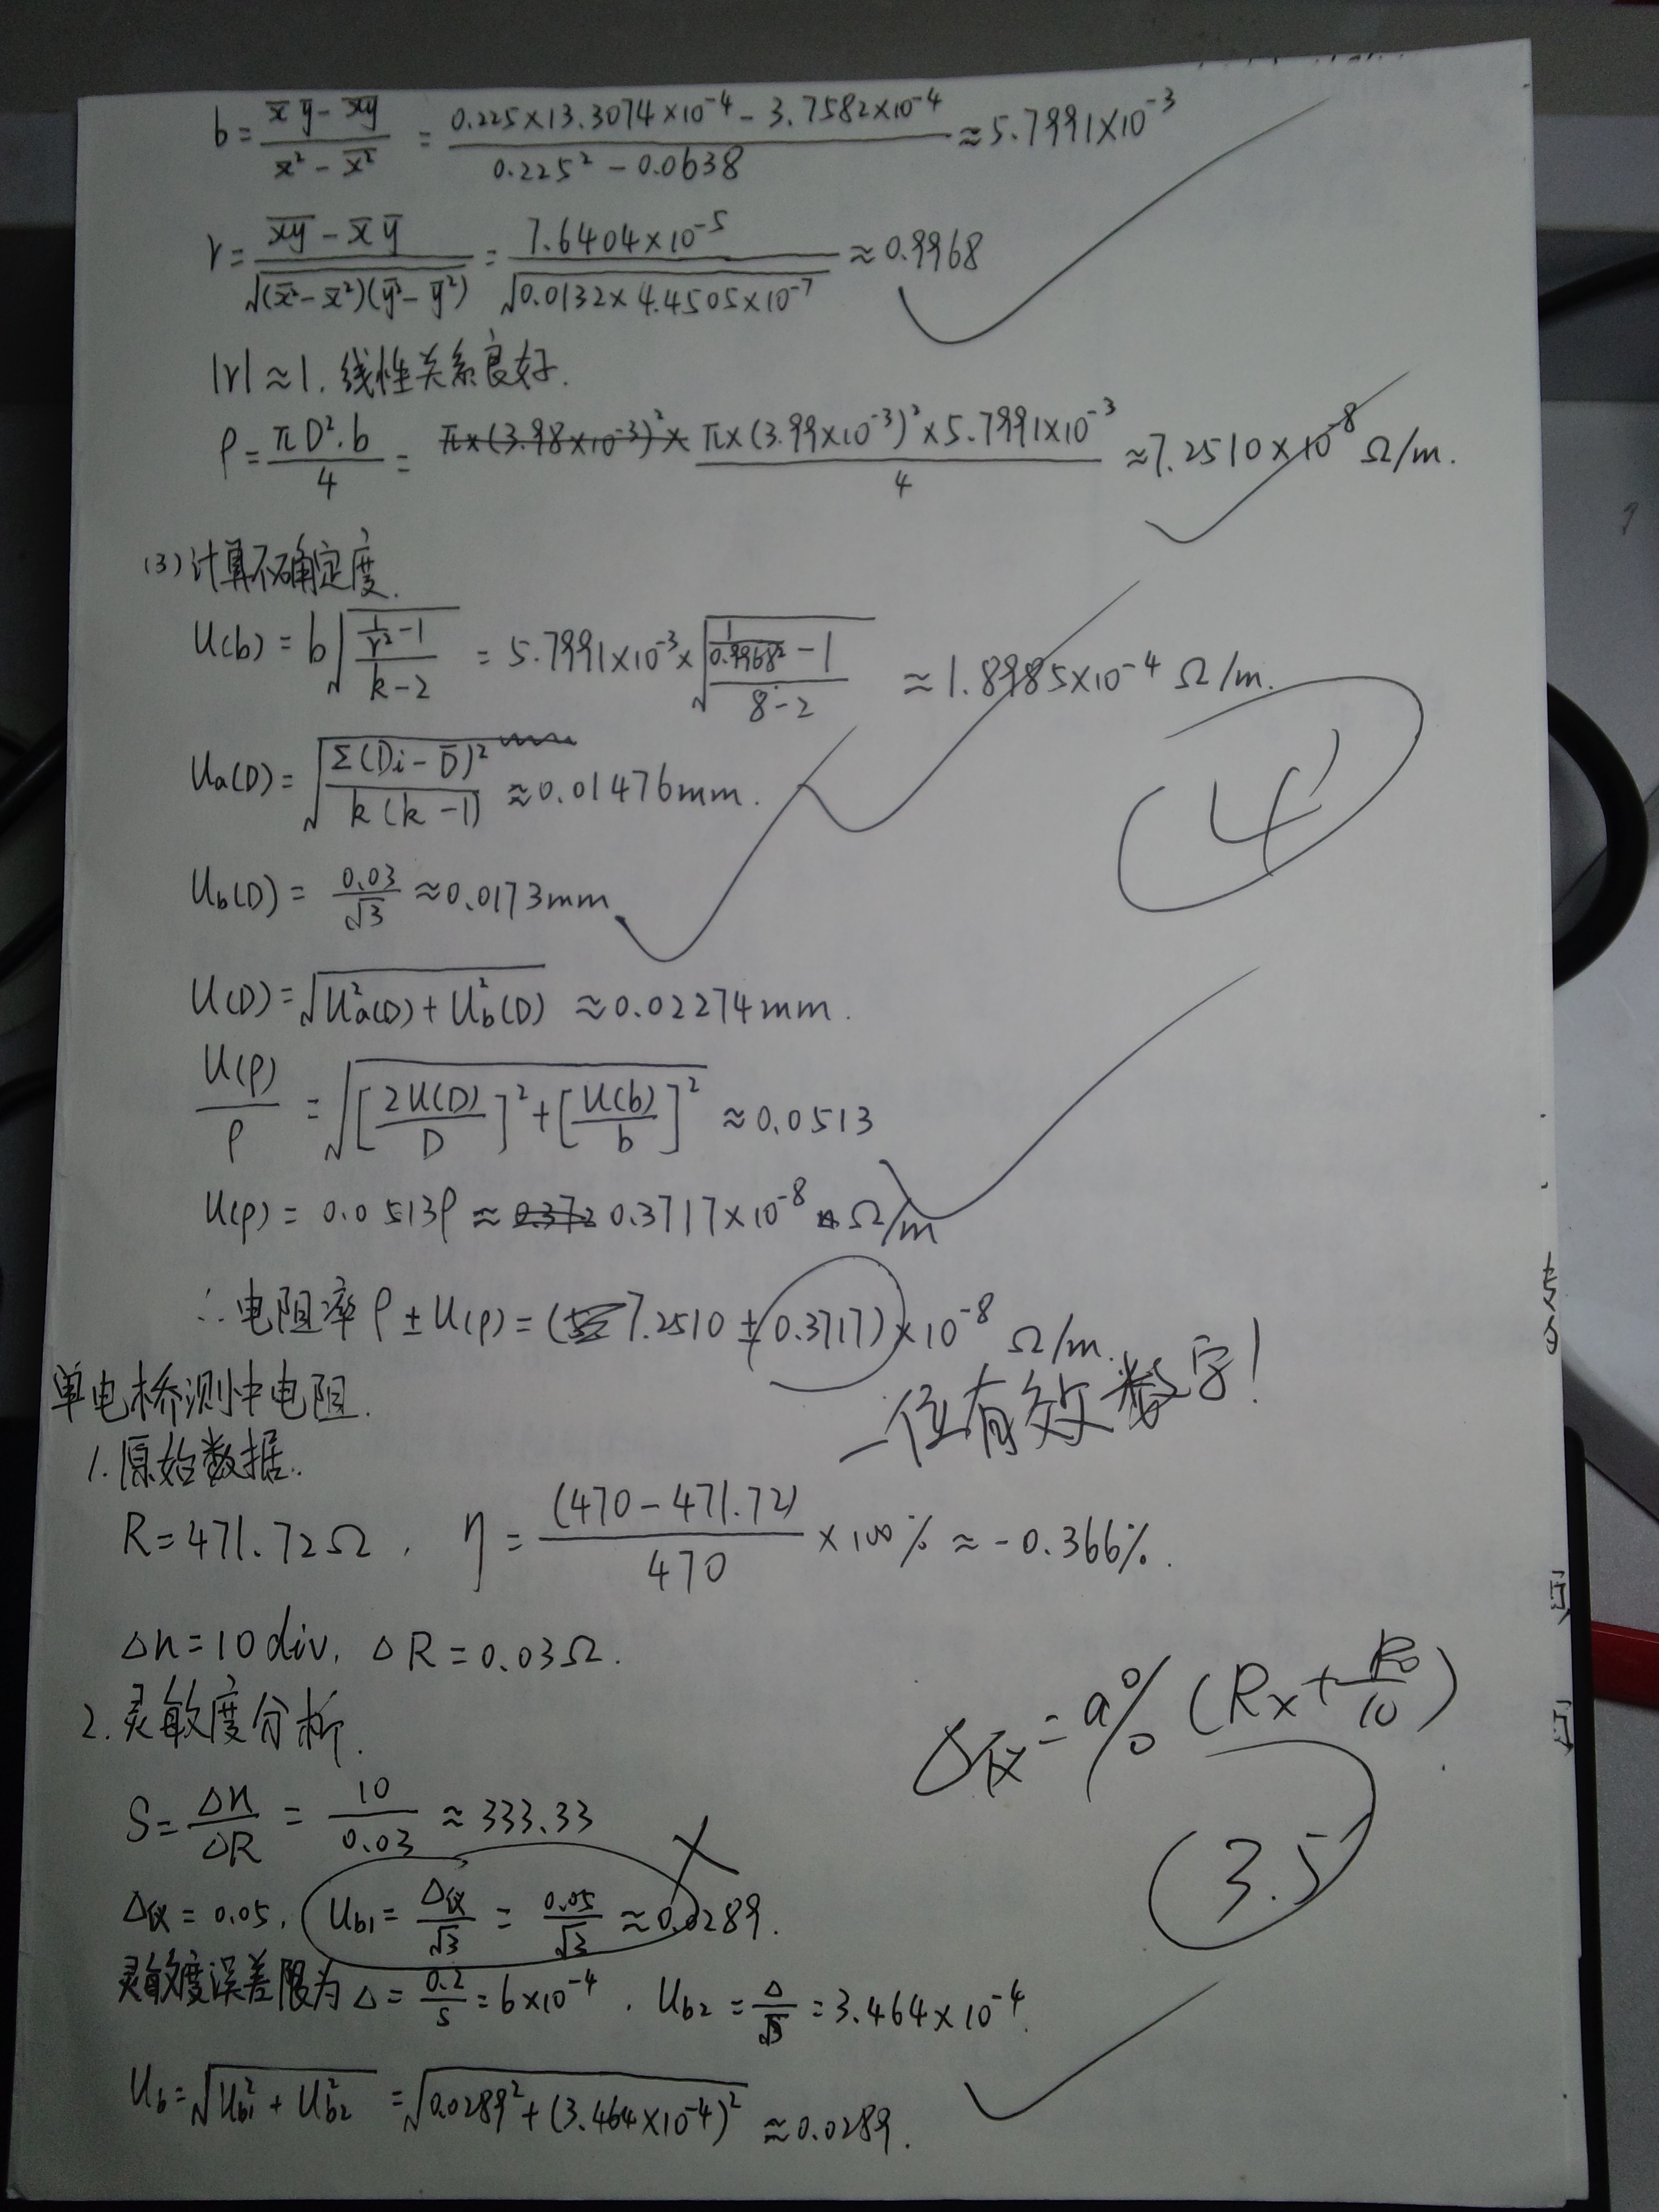 b = (x̄ ȳ - x̄y̅)/(x̄² - x̅²) = (0.225×13.3074×10⁻⁴ - 3.7582×10⁻⁴)/(0.225² - 0.0638) ≈ 5.7991×10⁻³
r = (x̅y̅ - x̄ ȳ)/√((x̅²-x̄²)(y̅²-ȳ²)) = 7.6404×10⁻⁵/√(0.0132×4.4505×10⁻⁷) ≈ 0.9968
|r| ≈ 1. 线性关系良好.
ρ = πD²·b/4 = π×(3.98×10⁻³)²× π×(3.99×10⁻³)²×5.7991×10⁻³/4 ≈ 7.2510×10⁻⁸ Ω/m.
(3) 计算不确定度.
U(b) = b√((1/r²-1)/(k-2)) = 5.7991×10⁻³×√((1/0.9968²-1)/(8-2)) ≈ 1.8985×10⁻⁴ Ω/m.
Ua(D) = √(Σ(Di-D̄)²/(k(k-1))) ≈ 0.01476mm.
4
Ub(D) = 0.03/√3 ≈ 0.0173mm
U(D) = √(Ua²(D)+Ub²(D)) ≈ 0.02274mm.
U(ρ)/ρ = √([2U(D)/D]²+[U(b)/b]²) ≈ 0.0513
U(ρ) = 0.0513ρ ≈ 0.372 0.3717×10⁻⁸ Ω/m
∴电阻率 ρ±U(ρ) = (7.2510±0.3717)×10⁻⁸ Ω/m.
一位有效数字!
单电桥测中电阻.
1. 原始数据.
R=471.72Ω, η = (470-471.72)/470 ×100% ≈ -0.366%.
Δn=10div, ΔR=0.03Ω.
2. 灵敏度分析.
Δ仪=a%(Rx+R₀/10)
S = Δn/ΔR = 10/0.03 ≈ 333.33
3.5
Δ仪=0.05, Ub1 = Δ仪/√3 = 0.05/√3 ≈ 0.0289.
灵敏度误差限为 Δ = 0.2/S = 6×10⁻⁴, Ub2 = Δ/√3 = 3.464×10⁻⁴.
Ub = √(Ub1²+Ub2²) = √(0.0289²+(3.464×10⁻⁴)²) ≈ 0.0289.